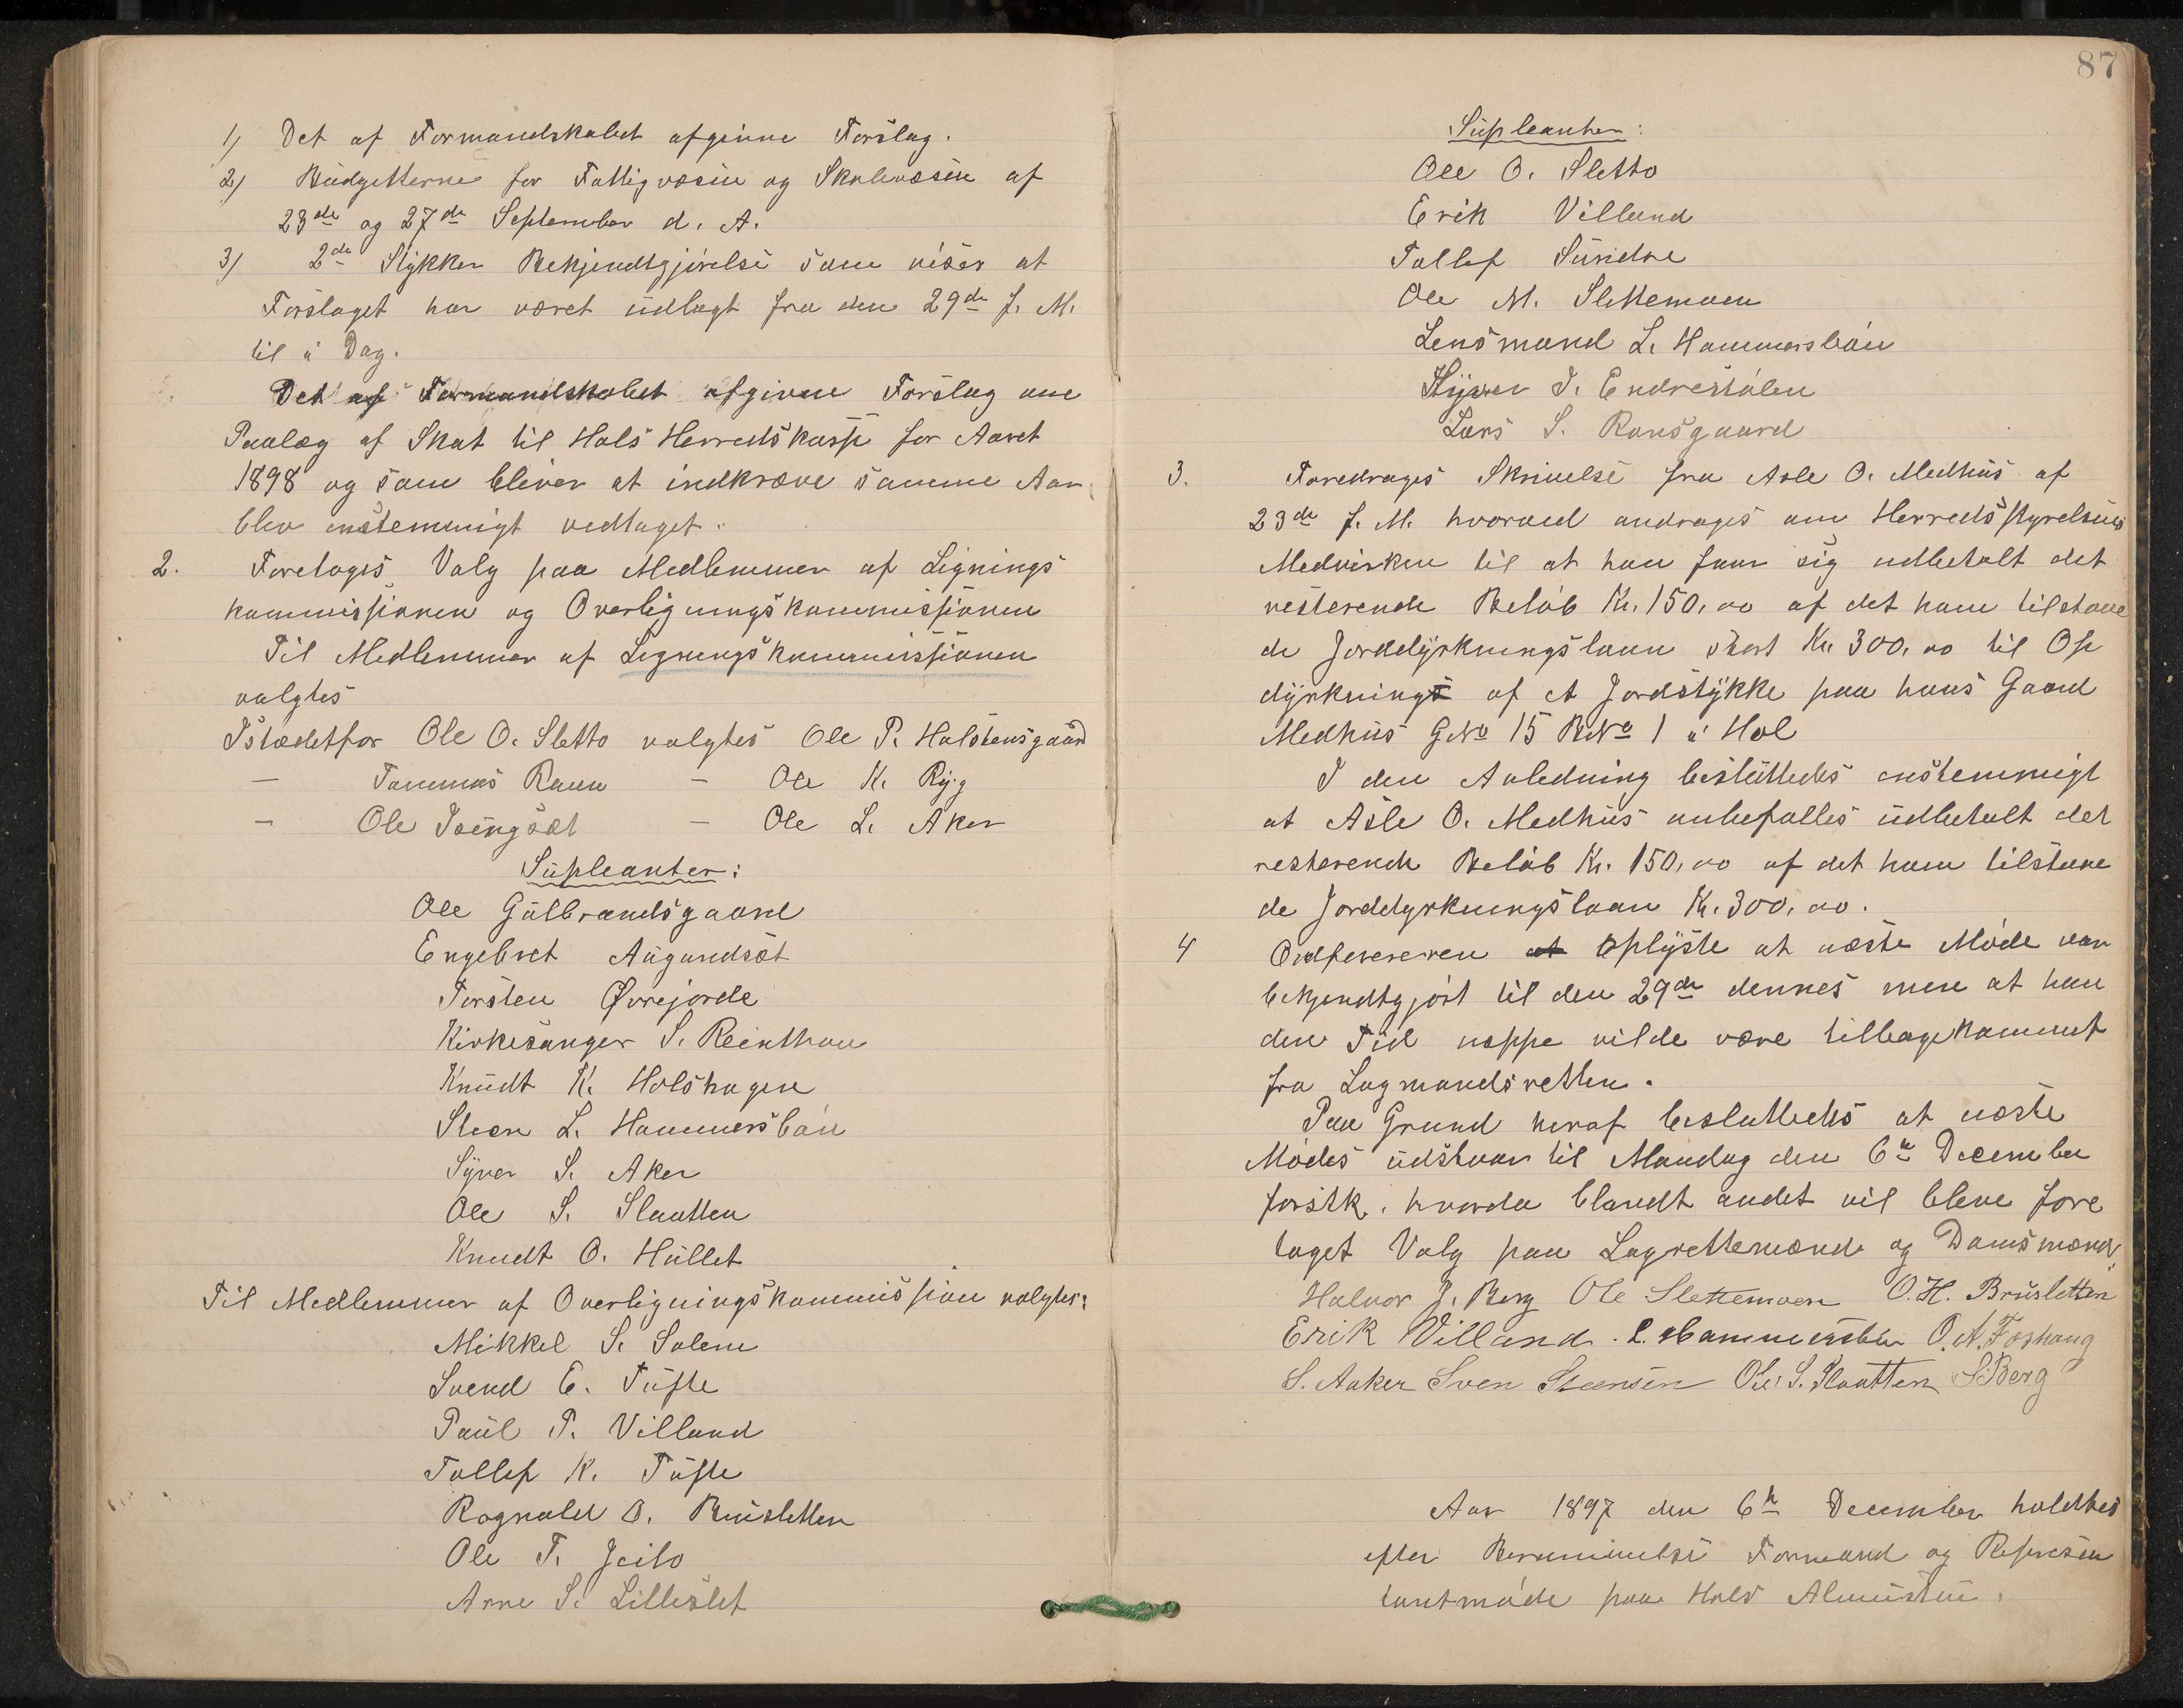 1) Det af Formandskabet afgivne Forslag.
2) Budgetterne for Fattigvæsen og Skolevæsen af
23de og 27de September d. A.
3) 2de Stykker Bekjendtgjørelse som viser at
Forslaget har været udlagt fra den 29de f. M.
til i Dag.
Det af Formandskabet afgivne Forslag om
Paalæg af Skat til Hols Herredskasse for Aaret
1898 og som bliver at indkræve samme Aar
blev enstemmigt vedtaget.
2. Foretages Valg paa Medlemmer af Lignings
kommissionen og Overligningskommissionen
Til Medlemmer af Ligningskommissionen
valgtes
Istædetfor Ole O. Sletto valgtes Ole P. Halstensgaard
— Tommas Raen — Ole K. Ryg
— Ole Isungsæt — Ole L. Aker
Supleanter:
Ole Gulbrandsgaard
Engebret Augundsæt
Torsten Øvrejorde
Kirkesanger S. Reinthon
Knudt K. Holshagen
Steen L. Hammersbøen
Syver S. Aker
Ole S. Slaatten
Knudt O. Hullet
Til Medlemmer af Overligningskommission valgtes:
Mikkel S. Solem
Svend E. Tufte
Paul P. Villand
Tollef K. Tufte
Rognald O. Brusletten
Ole T. Geilo
Arne S. Lilleslet
87
Supleanter:
Ole O. Sletto
Erik Villand
Tollef Sundre
Ole M. Slettemoen
Lensmand L. Hammersbøen
Syver I. Endrestølen
Lars S. Ransgaard
3. Foredrages Skrivelse fra Asle O. Medhus af
23de f. M. hvorved andrages om Herredsstyrelsens
Medvirken til at han faar sig udbetalt det
resterende Beløb Kr. 150,00 af det ham tilstaae
de Jorddyrkningslaan stort Kr. 300,00 til Op
dyrkning af et Jordstykke paa hans Gaard
Medhus GNo 15 BNo 1 i Hol
I den Anledning besluttedes enstemmigt
at Asle O. Medhus anbefalles udbetalt det
resterende Beløb Kr. 150,00 af det ham tilstaae
de Jorddyrkningslaan Kr. 300,00.
4 Ordfereren at oplyste at næste Møde var
bekjendtgjort til den 29de dennes men at han
den Tid neppe vilde være tilbagekommet
fra Lagmandsretten.
Paa Grund heraf besluttedes at næste
Mødes udstaar til Mandag den 6te December
førstk. hvorda blandt andet vil bleve fore
taget Valg paa Lagrettemænd og Domsmænd.
Halvor J. Berg Ole Slettemoen O. H. Brusletten
Erik Villand. L. Hammersbøen O. A. Foshaug
S. Aaker Sven Steensen Ole S. Slaatten S. Berg
Aar 1897 den 6te December holdtes
efter Berammelse Formand og Represen
tantmøde paa Hols Almustue.